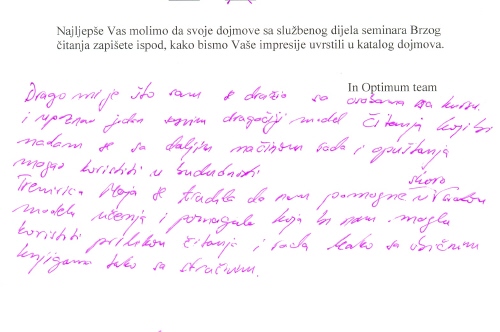 Najljepše Vas molimo da svoje dojmove sa službenog dijela seminara Brzog
čitanja zapišete ispod, kako bismo Vaše impresije uvrstili u katalog dojmova.
In Optimum team
Drago mi je što sam se družio sa osobama na kursu
i upoznao jedan sasvim drugačiji model čitanja koji bi
nadam se sa daljim načinom rada i opuštanja
mogao koristiti u budućnosti
Trenerica Maja se trudila da nam pomogne u skoro svakom
modelu učenja i pomagala koja bi nam mogla
koristiti prilikom čitanja i rada kako sa običnim
knjigama tako sa stručnim.